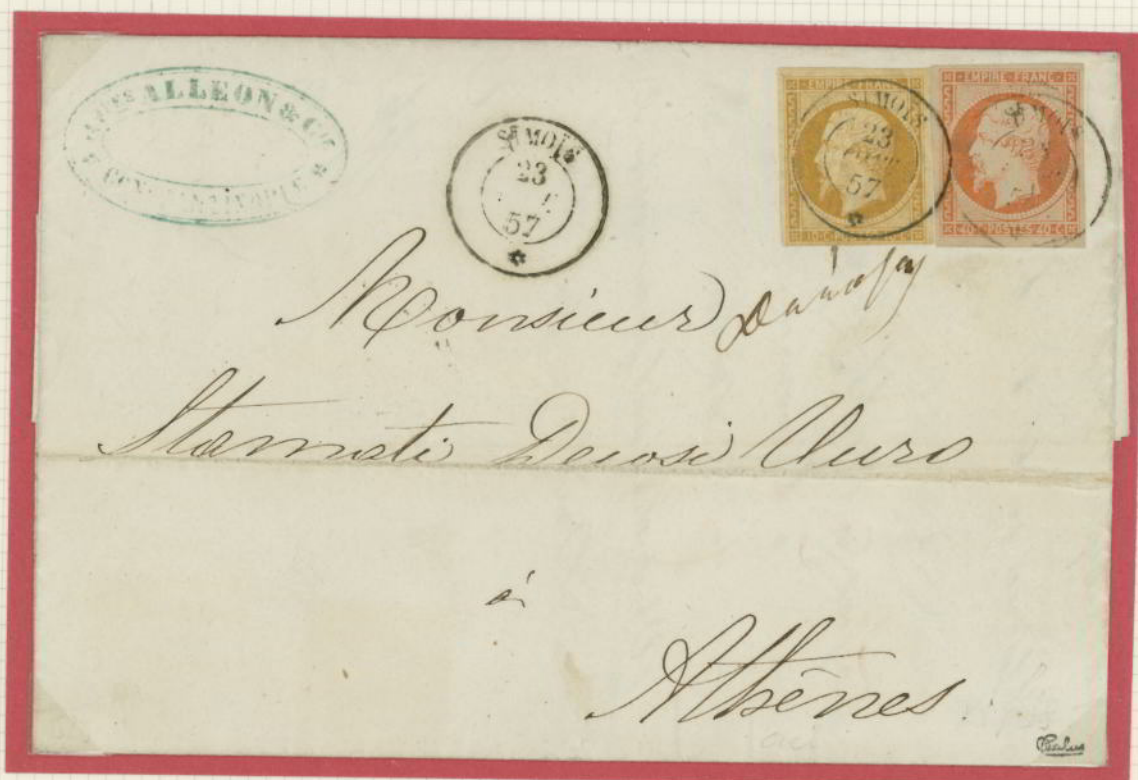 ALLEON & Cie
CONSTANTINOPLE
SIMOÏS
23
57
EMPIRE FRANC
SIMOÏS
23
57
10·C·POSTES·10·C
EMPIRE · FRANC
SIMOÏS
40·C·POSTES·40·C
Monsieur
Stamati
à
Athènes